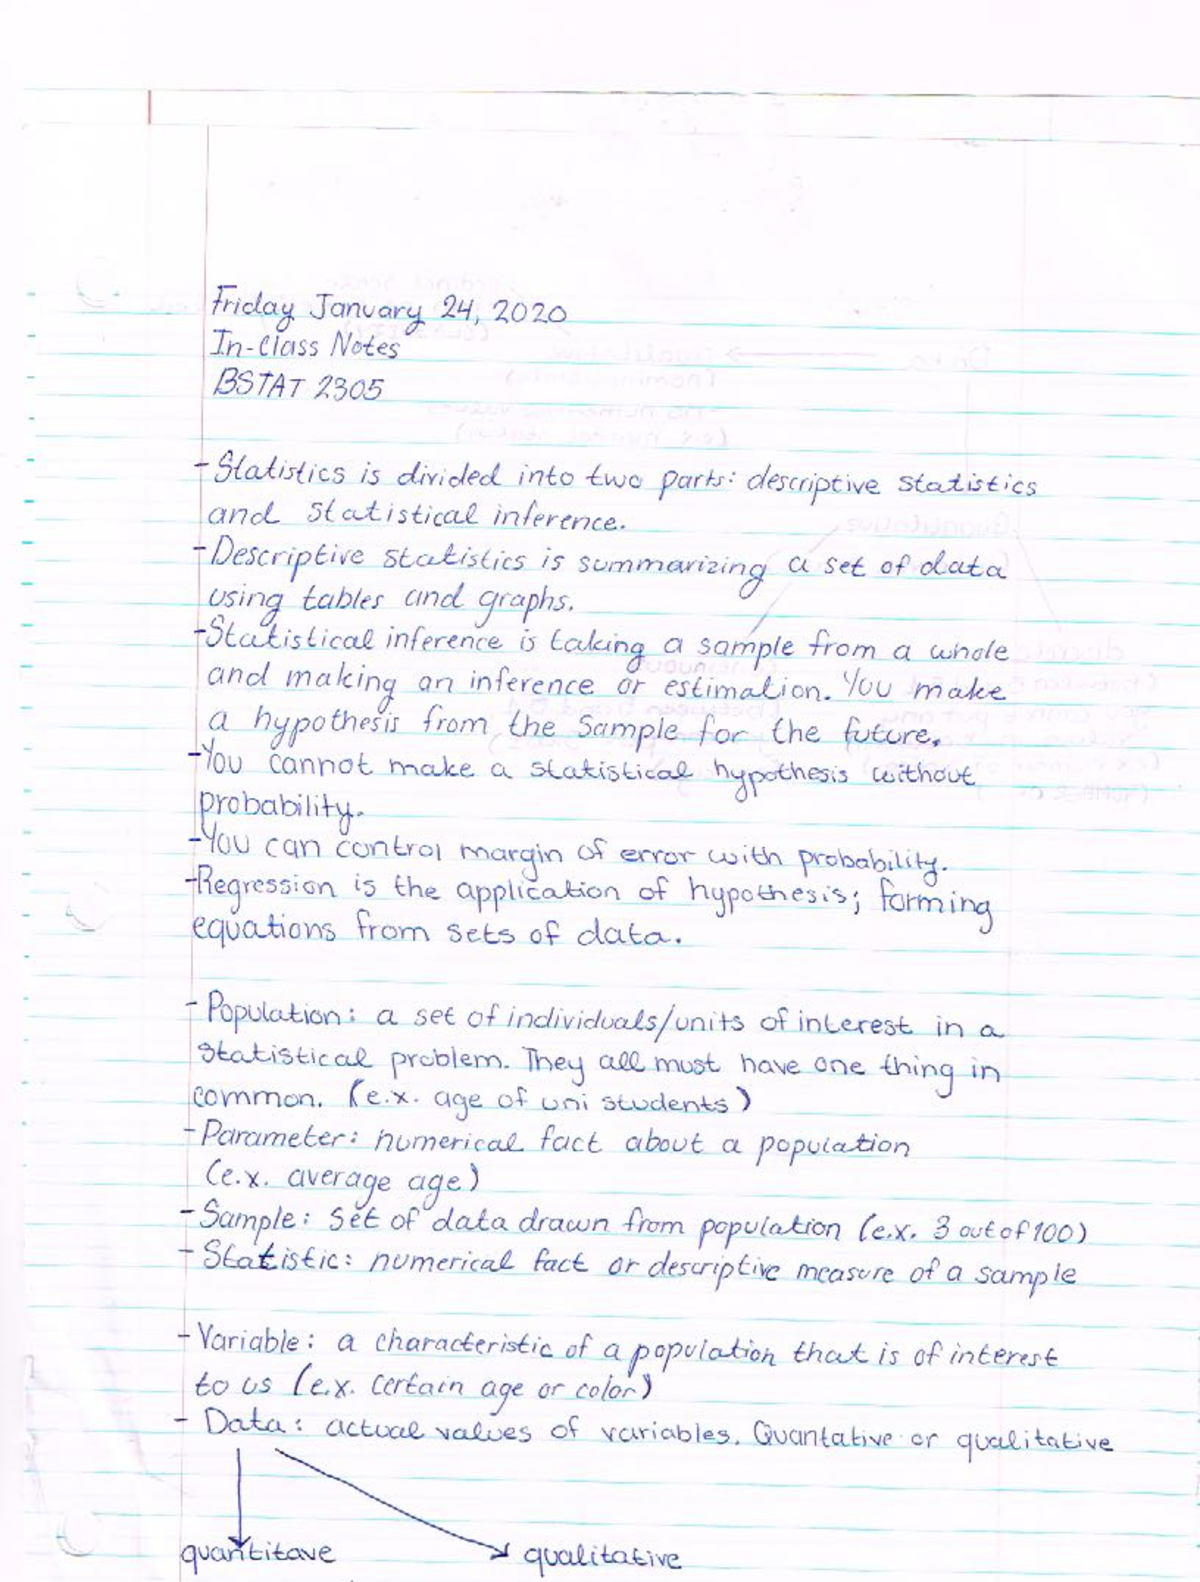 Friday January 24, 2020
In-Class Notes
BSTAT 2305
- Statistics is divided into two parts: descriptive statistics
and statistical inference.
- Descriptive statistics is summarizing a set of data
using tables and graphs.
- Statistical inference is taking a sample from a whole
and making an inference or estimation. You make
a hypothesis from the sample for the future.
- You cannot make a statistical hypothesis without
probability.
- You can control margin of error with probability.
- Regression is the application of hypothesis; forming
equations from sets of data.
- Population: a set of individuals/units of interest in a
statistical problem. They all must have one thing in
common. (e.x. age of uni students)
- Parameter: numerical fact about a population
(e.x. average age)
- Sample: set of data drawn from population (e.x. 3 out of 100)
- Statistic: numerical fact or descriptive measure of a sample
- Variable: a characteristic of a population that is of interest
to us (e.x. certain age or color)
- Data: actual values of variables. Quantative or qualitative
quantitave qualitative